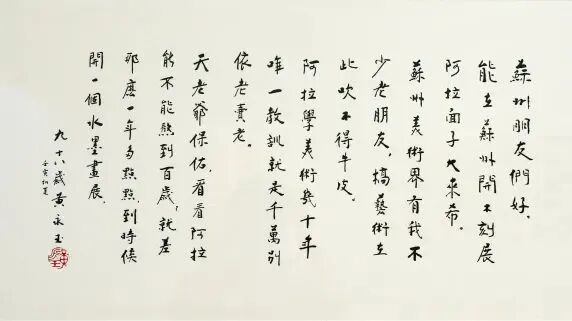 蘇州朋友們好，
能在蘇州開木刻展
阿拉面子大來希。
蘇州美術界有我不
少老朋友，搞藝術在
此吹不得牛皮。
阿拉學美術幾十年
唯一教訓就是千萬別
依老賣老。
天老爺保佑，看看阿拉
能不能熬到百歲，就差
那麽一年多點點到時候
開一個水墨畫展。
九十八歲黃永玉
壬寅初夏